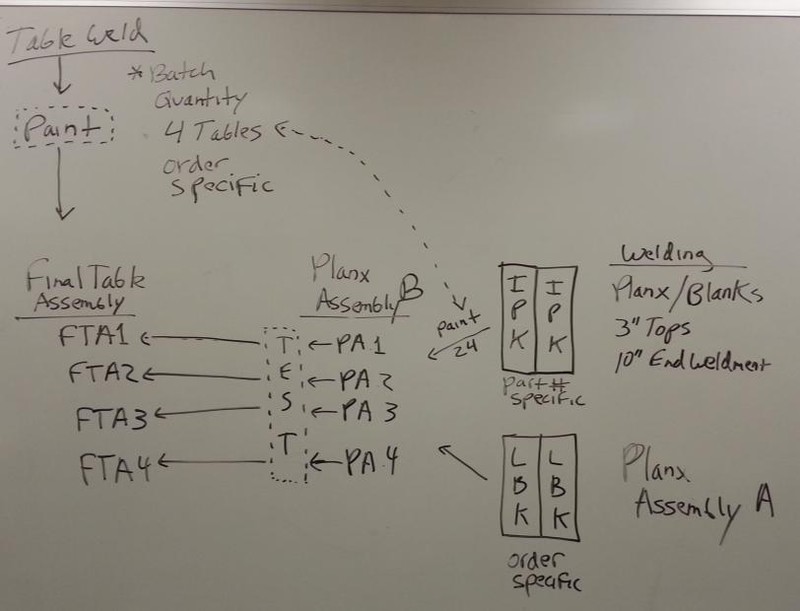 Table Weld
*Batch
Quantity
4 Tables
order
specific
Paint
Final Table
Assembly
FTA1
FTA2
FTA3
FTA4
Planx
Assembly B
T
E
S
T
PA1
PA2
PA3
PA4
paint
24
I I
P P
K K
Part#
specific
Welding
Planx/Blanks
3" Tops
10" End Weldment
L L
B B
K K
order
specific
Planx
Assembly A